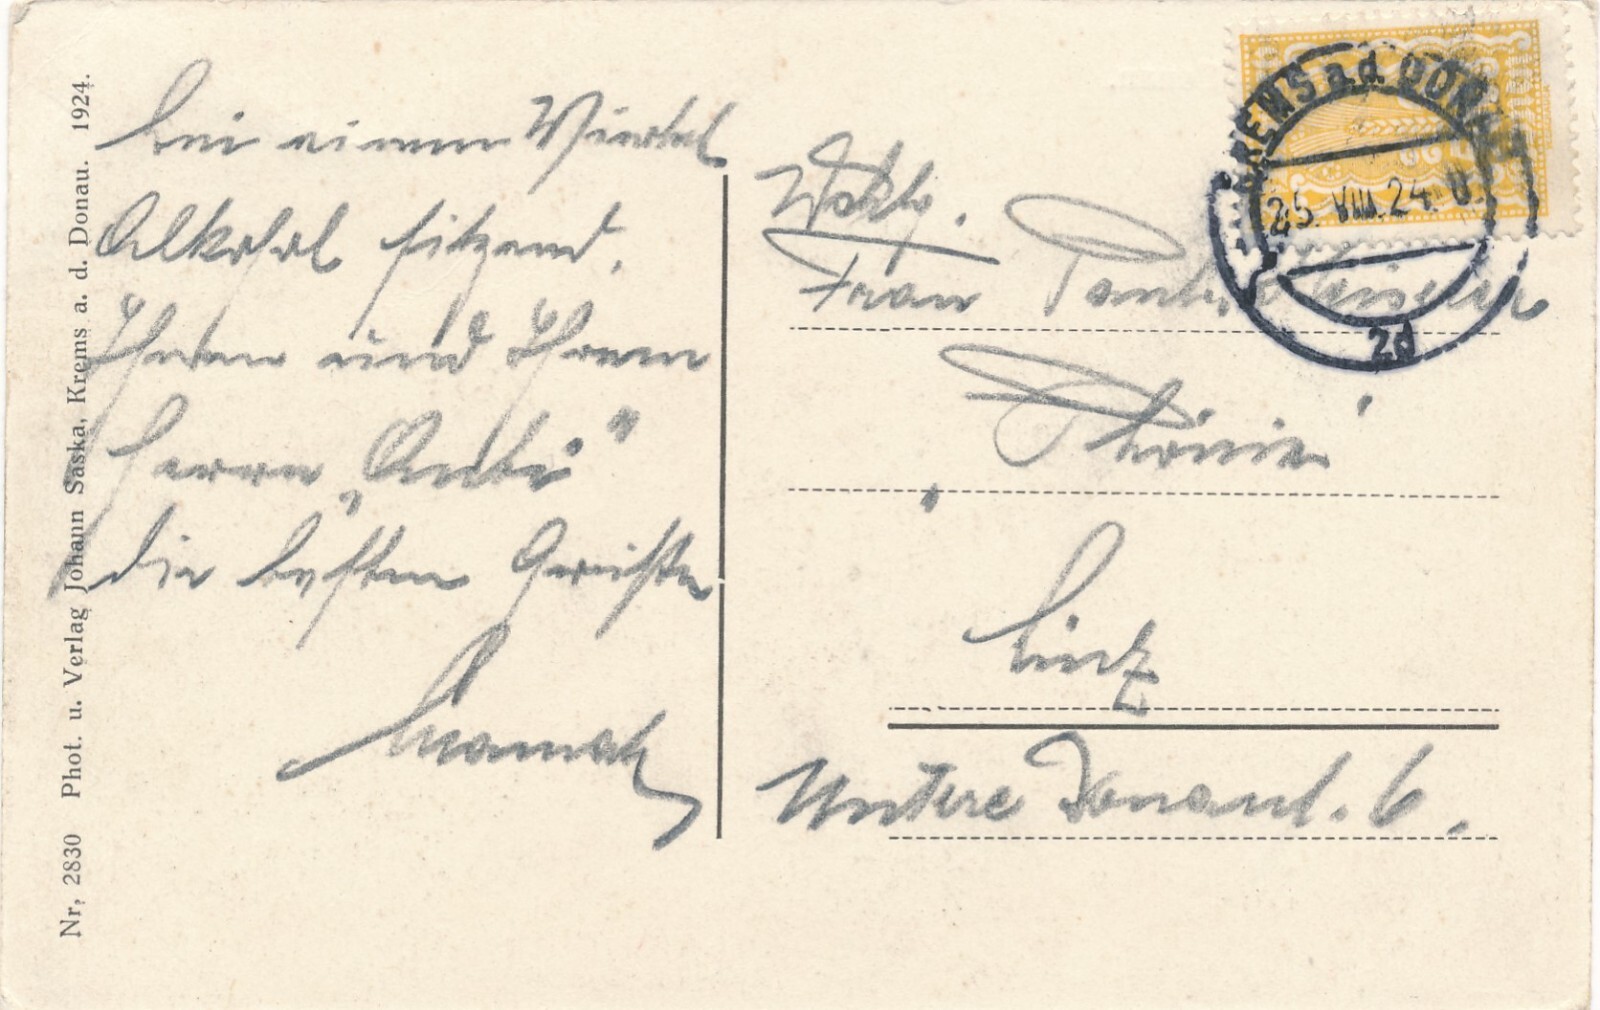 Nr. 2830 Phot. u. Verlag Johann Saska, Krems a. d. Donau. 1924.
bei einem Viertel
Alkohol sitzend,
Ihnen und Ihrem
Herrn „Anti"
die besten Grüße
KREMS a.d. DONAU
25. VIII. 24
2d
Wohlg.
Frau
Linz
Untere Donaul. 6.